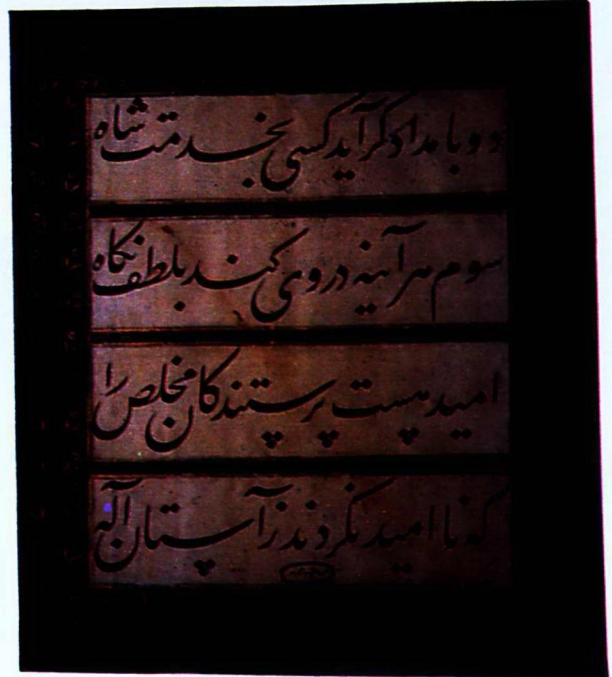 دو بامداد گر آید کسی بخدمت شاه
سوم هر آینه در وی کند بلطف نگاه
امید هست پرستندگان مخلص را
که نا امید نگردند ز آستان آله